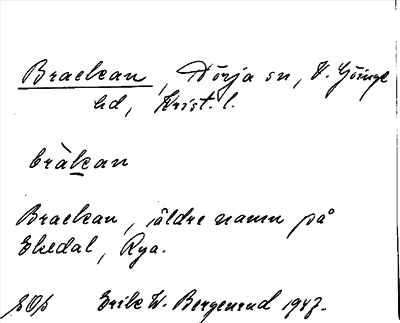 Brackan, Dörja sn, V. Göinge
hd, Krist. l.
bràkan
Brackan, äldre namn på
Ekedal, Rya.
Erik W. Bergenrud 1947.